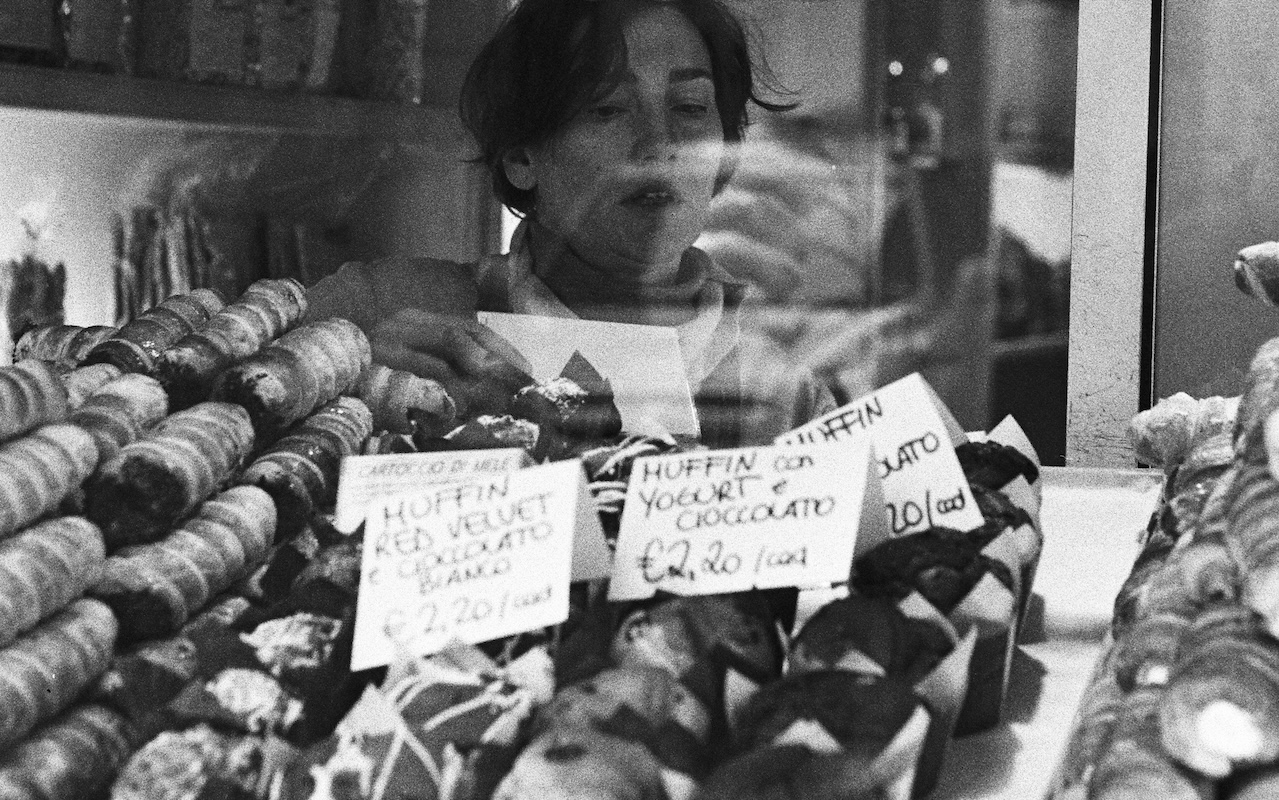 CARTOCCIO DI MELE
MUFFIN
RED VELVET
e CIOCCOLATO
BIANCO
€2,20/cad
MUFFIN con
YOGURT e
CIOCCOLATO
€2,20/cad
MUFFIN
OLATO
20/cad